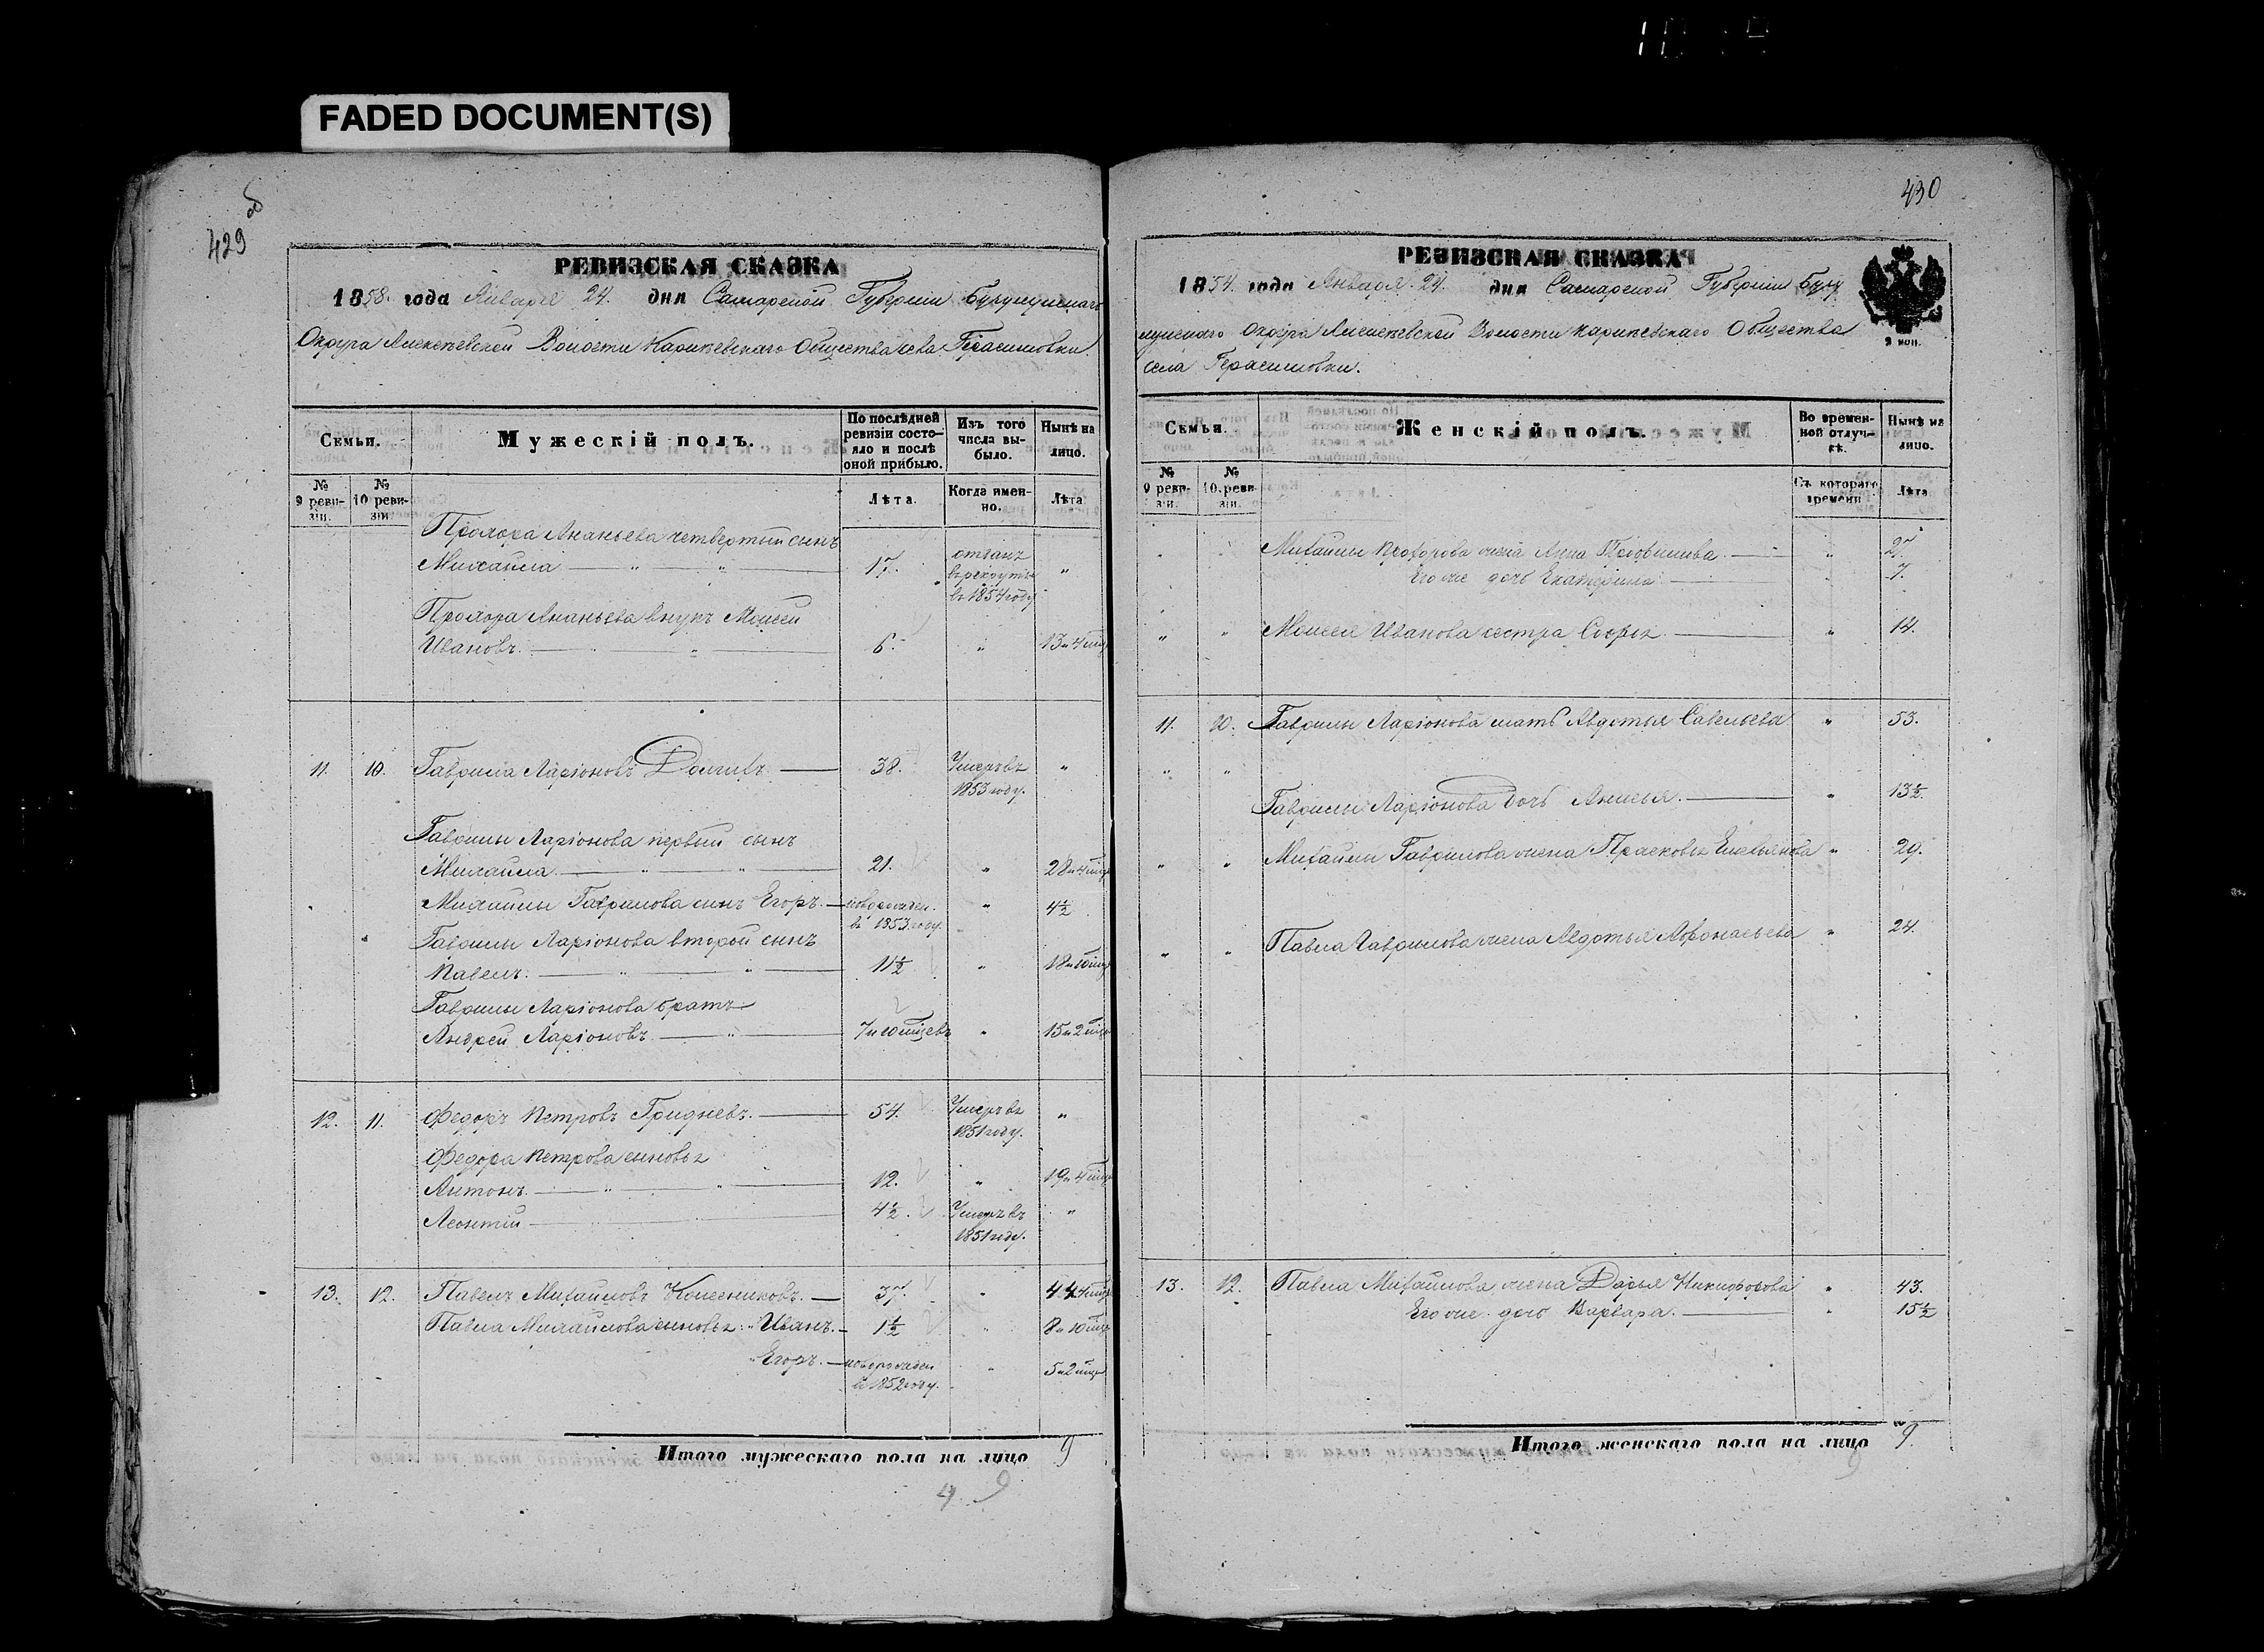 FADED DOCUMENT(S)
об
429
РЕВИЗСКАЯ СКАЗКА
1858. года Января 24. дня Самарской Губерніи Бузулукскаго
Округа Волости Общества села Герасимовки.
Семьи.
Мужескій полъ.
По послѣдней ревизіи состояло и послѣ оной прибыло.
Изъ того числа выбыло.
Нынѣ на лицо.
№ 9 ревизіи.
№ 10 ревизіи
Лѣта.
Когда именно.
Лѣта
Прохора Ананьева четвертый сынъ
Михаила 17. отданъ в рекруты в 1854 году "
Прохора Ананьева внукъ Моисей
Ивановъ. 6. " 13 и 4 мѣц
11. 10. Гаврила Ларіоновъ 38. Умеръ въ 1853 году. "
Гаврилы Ларіонова первый сынъ
Михаила 21. " 28 и 4 мѣц
Михаилы Гаврилова сынъ Егоръ. новорожден. въ 1853 году. " 4½
Гаврилы Ларіонова второй сынъ
Павелъ. 11½ " 18 и 10 мѣц
Гаврилы Ларіонова братъ
Андрей Ларіоновъ 7 и 10 мѣцевъ " 15 и 2 мѣц
12. 11. Федоръ Петровъ Гридневъ. 54. Умеръ въ 1851 году. "
Федора Петрова сыновья
Антонъ. 12. " 19 и 4 мѣц
Леонтій 4½. Умеръ въ 1851 году. "
13. 12. Павелъ Михайловъ Колесниковъ. 37. " 44 4 мѣц
Павла Михайлова сыновья: Иванъ. 1½ " 8 и 10 мѣц
Егоръ. новорожден в 1852 году. " 5 и 2 мѣц
Итого мужескаго пола на лицо 9
9
430
РЕВИЗСКАЯ СКАЗКА
1854. года Января 24. дня Самарской Губерніи Бузу
лукскаго Округа Волости Общества
села Герасимовки.
9 коп.
Семьи.
Женскій полъ.
Во временной отлучкѣ.
Нынѣ на лицо.
№ 9 ревизіи.
№ 10. ревизіи.
Съ котораго времени
Лѣта
Михаилы Прохорова жена Анна " 27.
Его же дочь Екатерина 7.
" " Моисея Иванова сестра Софья " 14.
11. 10. Гаврилы Ларіонова мать Авдотья Савельева " 53.
" " Гаврилы Ларіонова дочь Анисья. " 13½.
" " Михаилы Гаврилова жена Прасковья Емельянова " 29.
" " Павла Гаврилова жена Авдотья Афонасьева " 24.
13. 12. Павла Михайлова жена Дарья Никифорова " 43.
Его же дочь Варвара. " 15½
Итого женскаго пола на лицо 9.